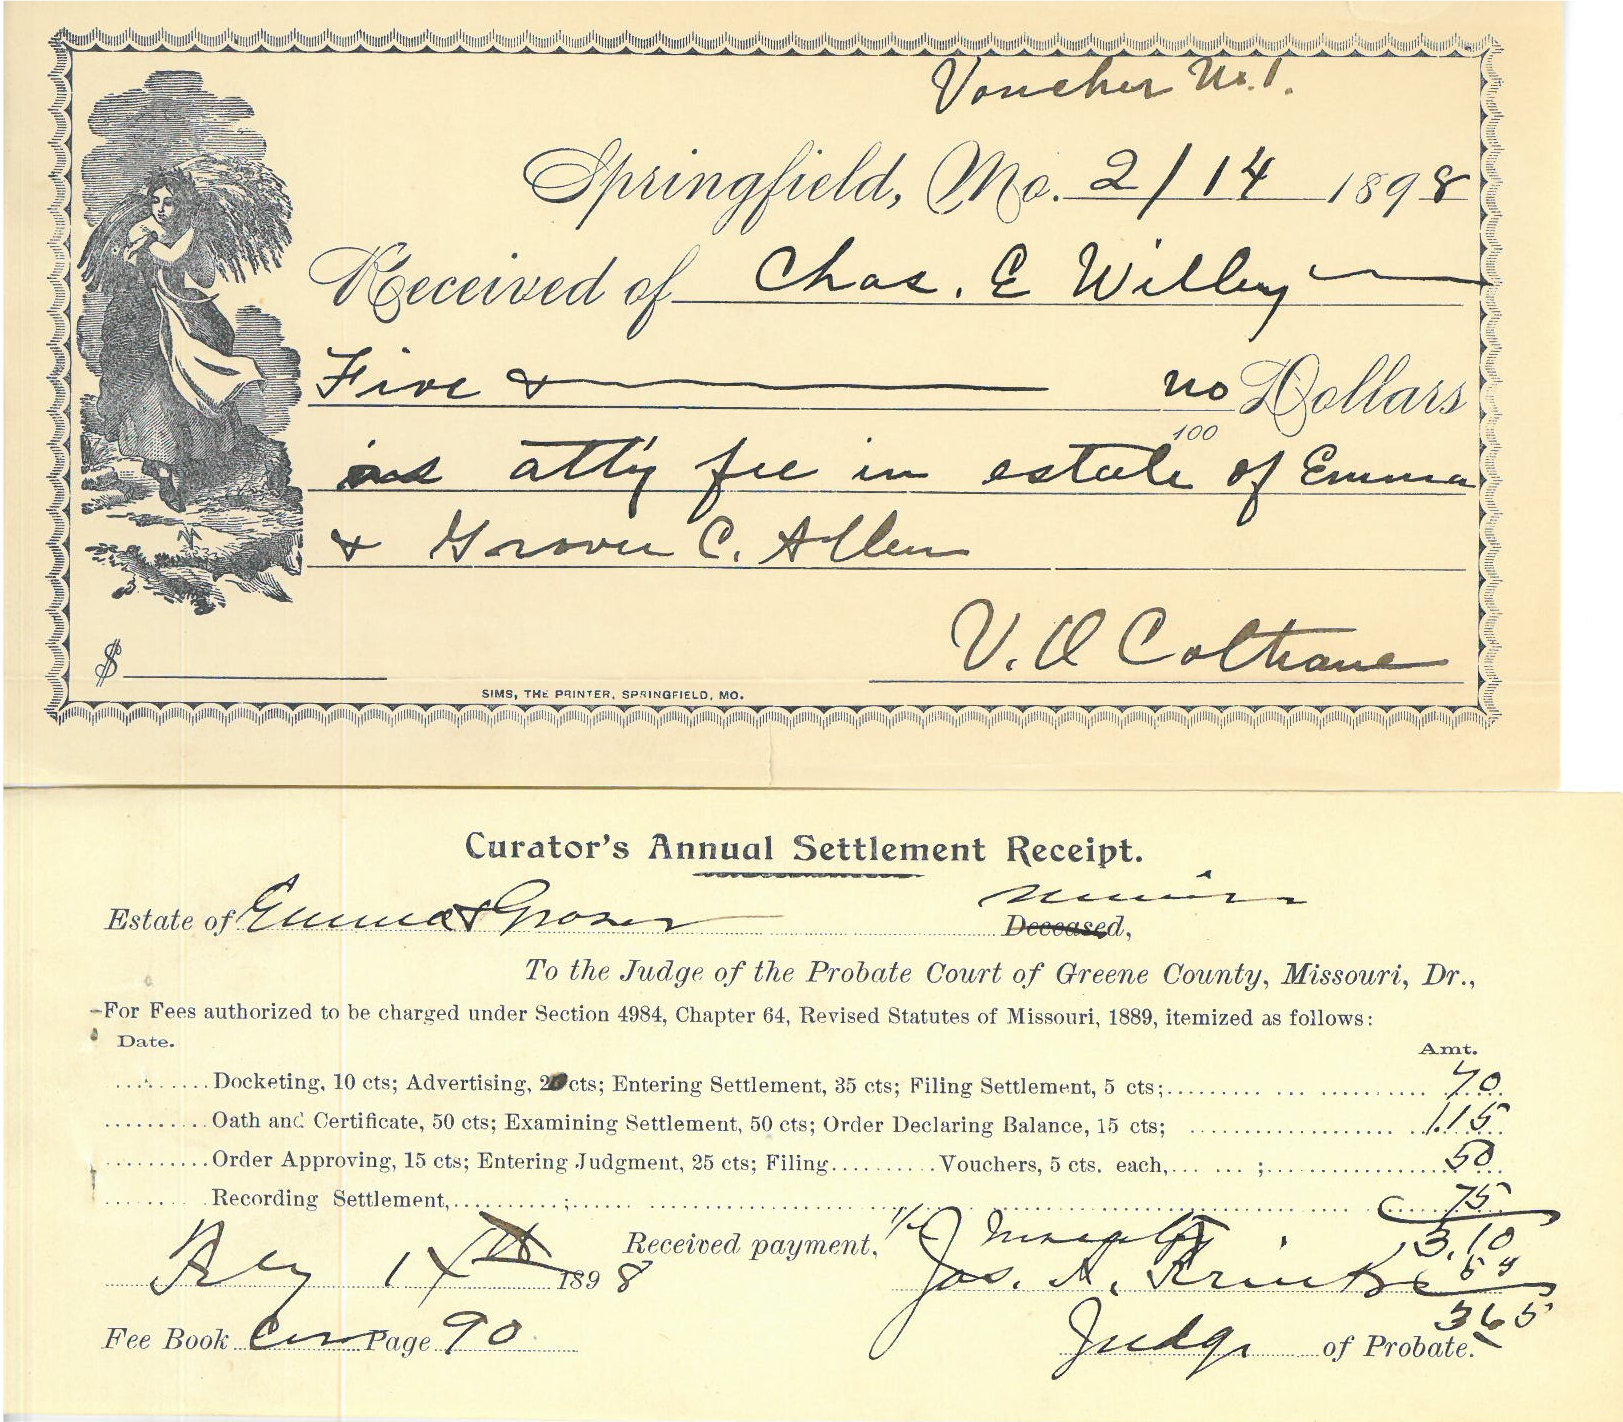 Voucher No. 1.
Springfield, Mo. 2/14 1898
Received of Chas. E Willey
Five & no Dollars
100
as att'y fee in estate of Emma
& Grover C. Allen
V. O Coltrane
$
SIMS, THE PRINTER, SPRINGFIELD, MO.
Curator's Annual Settlement Receipt.
minor
Estate of Emma & Grover Deceased,
To the Judge of the Probate Court of Greene County, Missouri, Dr.,
For Fees authorized to be charged under Section 4984, Chapter 64, Revised Statutes of Missouri, 1889, itemized as follows:
Date. Amt.
Docketing, 10 cts; Advertising, 20 cts; Entering Settlement, 35 cts; Filing Settlement, 5 cts; 70
Oath and Certificate, 50 cts; Examining Settlement, 50 cts; Order Declaring Balance, 15 cts; 1.15
Order Approving, 15 cts; Entering Judgment, 25 cts; Filing Vouchers, 5 cts. each, ; 50
Recording Settlement, ; 75
Received payment, 3.10
Feby 14th 1898 Jas. A.
365
Fee Book Cur Page 90 Judge of Probate.